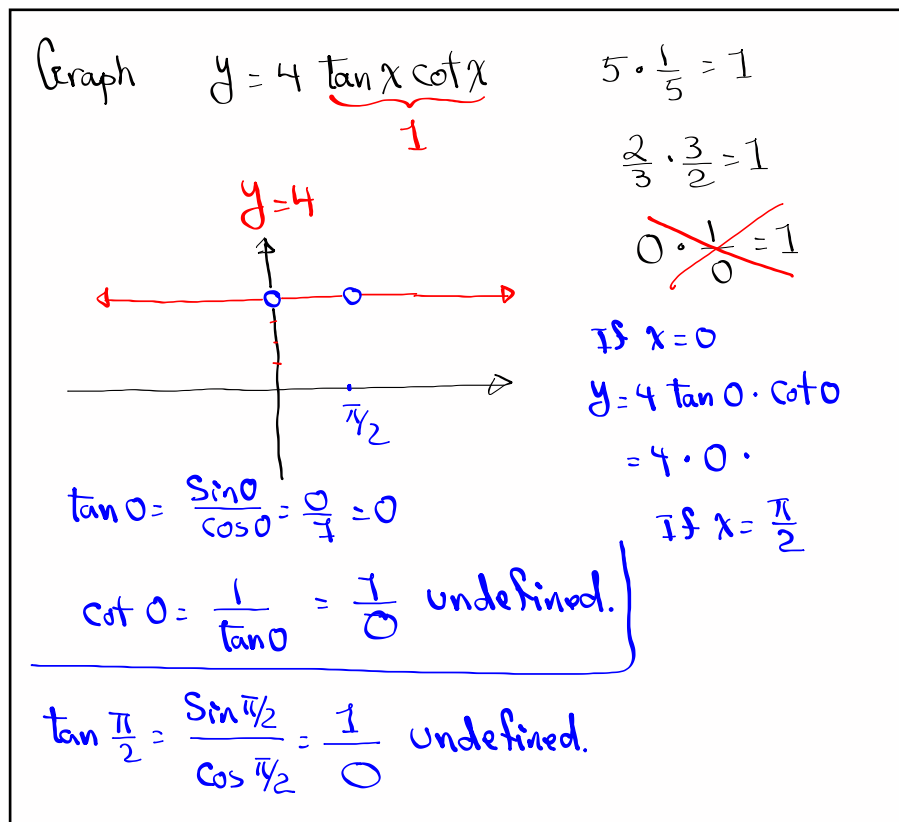 Graph y = 4 tan x cot x
1
5 · 1/5 = 1
2/3 · 3/2 = 1
0 · 1/0 = 1
y = 4
π/2
If x = 0
y = 4 tan 0 · cot 0
= 4 · 0 ·
If x = π/2
tan 0 = sin 0 / cos 0 = 0/1 = 0
cot 0 = 1 / tan 0 = 1/0 undefined.
tan π/2 = Sin π/2 / Cos π/2 = 1/0 undefined.